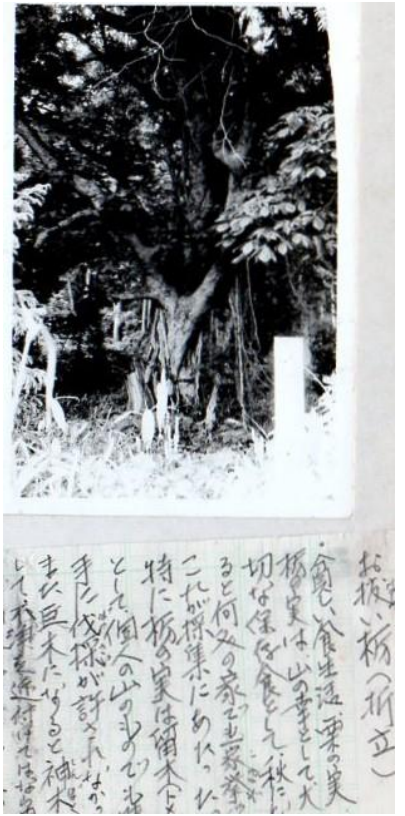 お祓い栃(折立)
・貧しい食生活、栗の実
栃の実は山の幸として大
切な保存食として秋にな
ると何処の家でも一家挙
これが採集にあたった
特に栃の実は留木(と
として個人の山のものでも勝
手に伐採が許されなかっ
また巨木になると神木
いて不浄を近付けてはなら